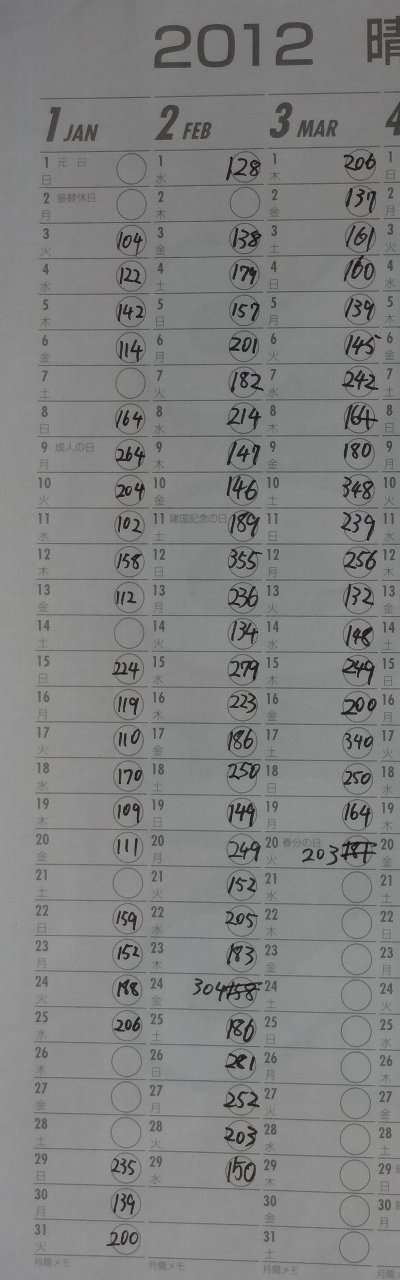 2012 晴
1 JAN 2 FEB 3 MAR 4
1 日 元日 1 水 128 1 木 206 1 日
2 月 振替休日 2 木 2 金 137 2 月
3 火 104 3 金 138 3 土 161 3 火
4 水 122 4 土 179 4 日 160 4 水
5 木 142 5 日 157 5 月 139 5 木
6 金 114 6 月 201 6 火 145 6 金
7 土 7 火 182 7 水 242 7 土
8 日 164 8 水 214 8 木 164 8 日
9 月 成人の日 264 9 木 147 9 金 180 9 月
10 火 204 10 金 146 10 土 348 10 火
11 水 102 11 土 建国記念の日 189 11 日 239 11 水
12 木 158 12 日 355 12 月 256 12 木
13 金 112 13 月 236 13 火 132 13 金
14 土 14 火 134 14 水 148 14 土
15 日 224 15 水 279 15 木 249 15 日
16 月 119 16 木 223 16 金 200 16 月
17 火 110 17 金 186 17 土 340 17 火
18 水 170 18 土 250 18 日 250 18 水
19 木 109 19 日 149 19 月 164 19 木
20 金 111 20 月 249 20 火 春分の日 203 20 金
21 土 21 火 152 21 水 21 土
22 日 159 22 水 205 22 木 22 日
23 月 152 23 木 183 23 金 23 月
24 火 188 24 金 304 158 24 土 24 火
25 水 206 25 土 186 25 日 25 水
26 木 26 日 281 26 月 26 木
27 金 27 月 252 27 火 27 金
28 土 28 火 203 28 水 28 土
29 日 235 29 水 150 29 木 29 日
30 月 139 30 金 30 月
31 火 200 31 土
月間メモ 月間メモ 月間メモ 月間